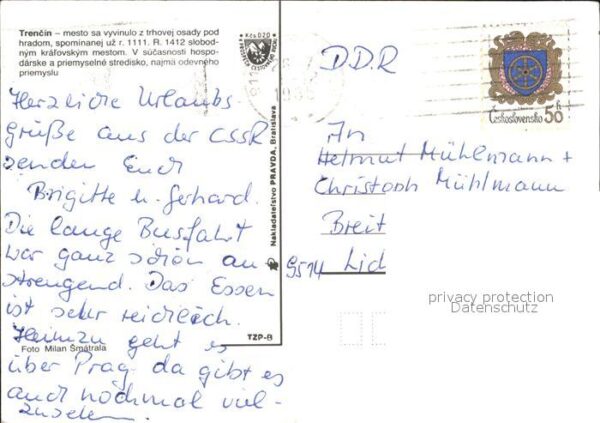 Trenčín – mesto sa vyvinulo z trhovej osady pod
hradom, spomínanej už r. 1111. R. 1412 slobod-
ným kráľovským mestom. V súčasnosti hospo-
dárske a priemyselné stredisko, najmä odevného
priemyslu
Kčs 0,20
Herzliche Urlaubs
grüße aus der CSSR
senden Euch
Brigitte u. Gerhard.
Die lange Busfahrt
war ganz schön an
strengend. Das Essen
ist sehr reichlich.
Heimzu geht es
über Prag, da gibt es
auch nochmal viel-
zusehen.
Foto Milan Šmátrala
Nakladateľstvo PRAVDA, Bratislava
TZP-B
DDR
Československo 50 h
An
Helmut Mühlmann +
Christoph Mühlmann
Breit
9514 Lid
privacy protection
Datenschutz